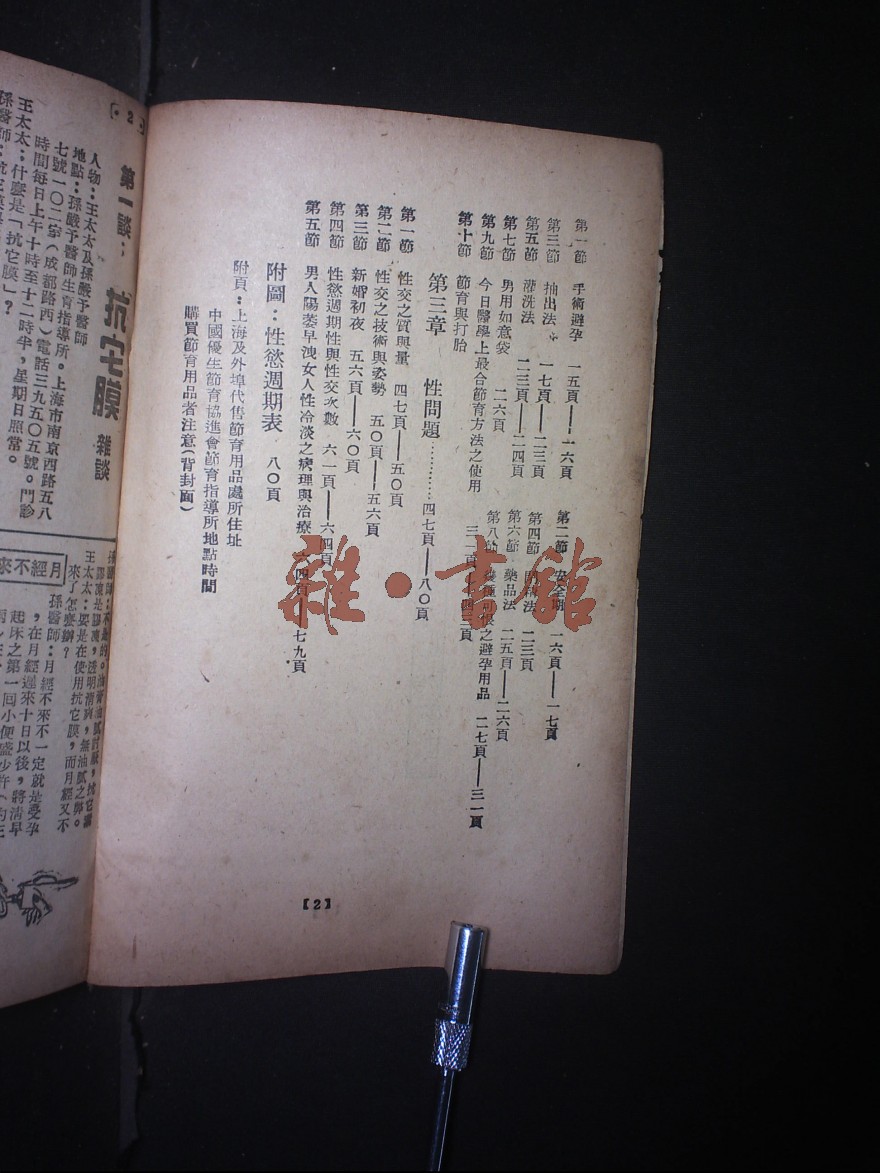 第一節　手術避孕　一五頁——一六頁
第二節　安全期　一六頁——一七頁
第三節　抽出法　一七頁——二三頁
第四節　二三頁
第五節　灌洗法　二三頁——二四頁
第六節　藥品法　二五頁——二六頁
第七節　男用如意袋　二六頁
第八節　之避孕用品　二七頁——三一頁
第九節　今日醫學上最合節育方法之使用　三一頁——四三頁
第十節　節育與打胎
第三章　性問題…………四七頁——八〇頁
第一節　性交之質與量　四七頁——五〇頁
第二節　性交之技術與姿勢　五〇頁——五六頁
第三節　新婚初夜　五六頁——六〇頁
第四節　性慾週期性與性交次數　六一頁——六四頁
第五節　男人陽萎早洩女人性冷淡之病理與治療　六四頁——七九頁
附圖：性慾週期表　八〇頁
附頁：上海及外埠代售節育用品處所住址
中國優生節育協進會節育指導所地點時間
購買節育用品者注意(背封面)
【2】
雜·書館
第一談：抗它膜 雜談
人物：王太太及孫嚴予醫師
地點：孫嚴予醫師生育指導所。上海市南京西路五八
七號一〇二室(成都路西)電話三九五〇五號。門診
時間每日上午十時至十二時半，星期日照常。
王太太：什麼是「抗它膜」？
孫醫師：抗它膜是
月經不來
膠凍是膠凍，透明清爽，無油膩之弊。
王太太：要是在使用抗它膜，而月經又不
來了怎麼辦？
孫醫師：月經不來不一定就是受孕
，在月經遲來十日以後，將清早
起床之第一回小便盛少許